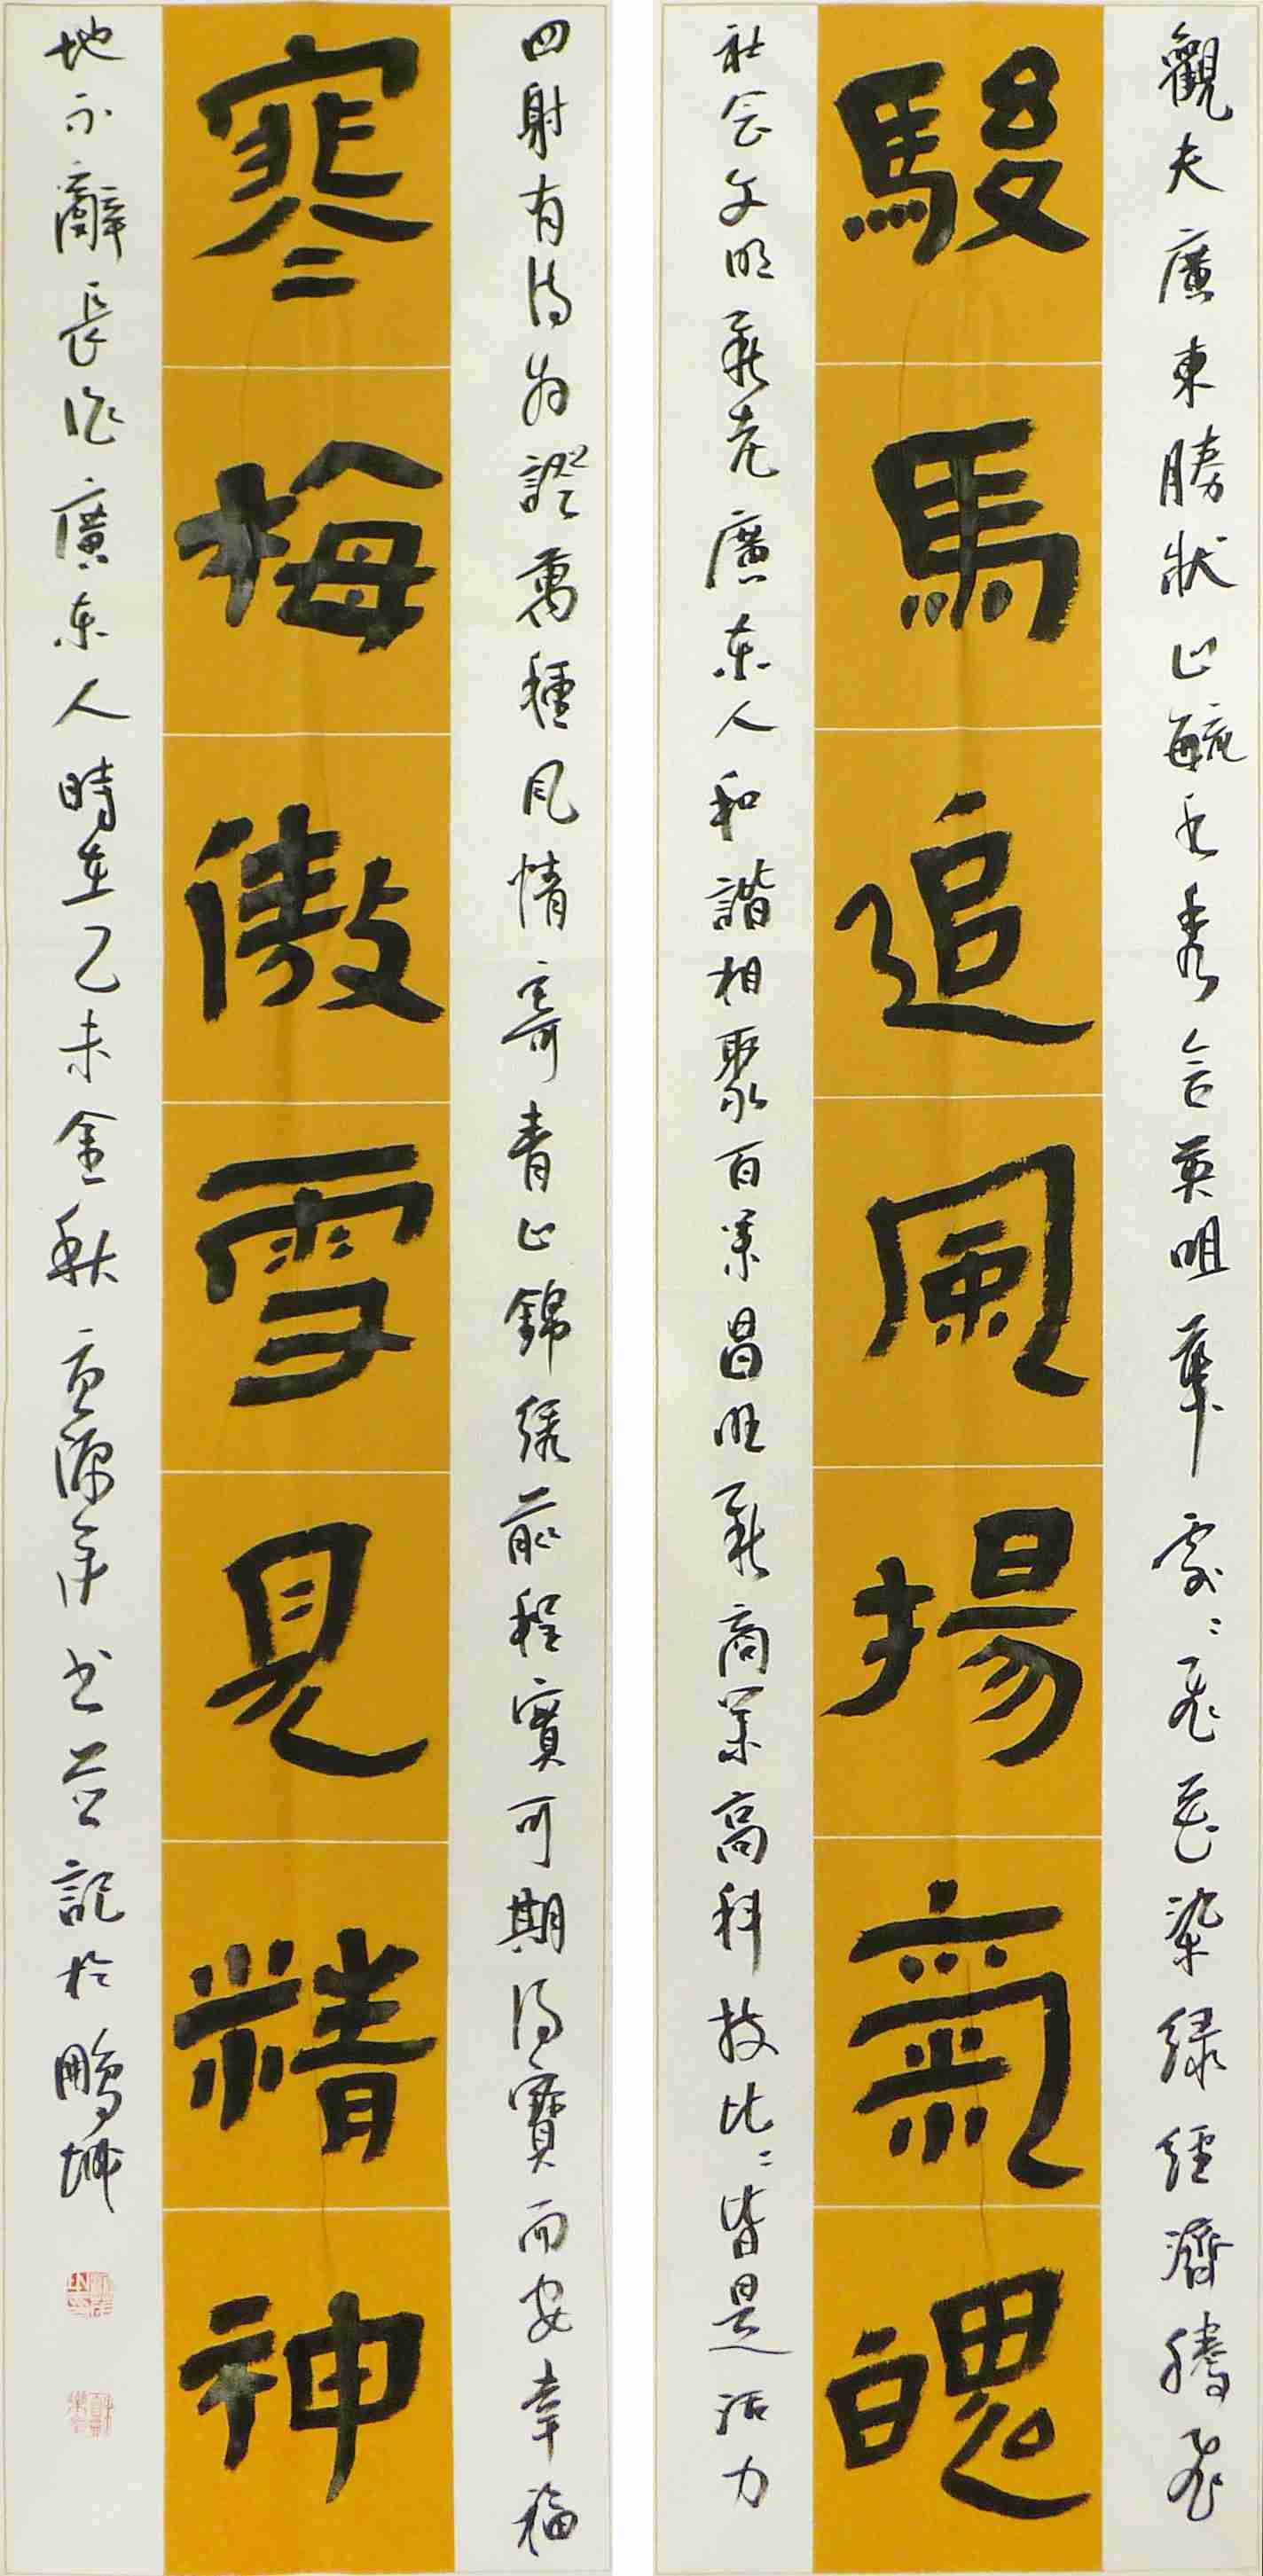 觀夫廣東勝狀山毓水秀含英咀華處々飛花染綠經濟騰飛
駿馬追風揚氣魄
社会文明乘先廣東人和諧相聚百業昌旺乘商業高科技比々皆是活力
四射有得为證萬種风情寄青山錦綉前程實可期得寶而安幸福
寒梅傲雪見精神
地不辭長作廣东人時在乙未金秋 书并記於鵬城